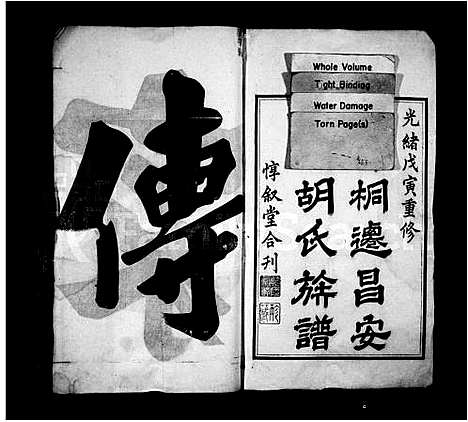 Whole Volume
Tight Binding
Water Damage
Torn Page(s)
光緒戊寅重修
桐邊昌安
胡氏旌譜
惇叙堂合刊
傳